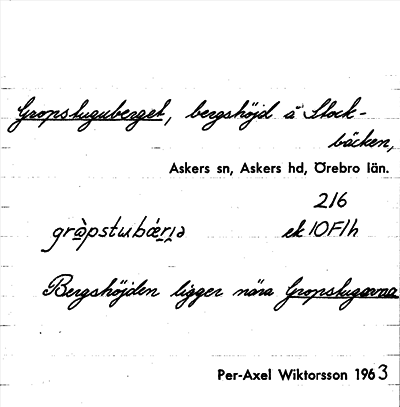 Gropstuguberget, bergshöjd å Stock-
bäcken,
Askers sn, Askers hd, Örebro län.
216
gràpstɯbǽrjə ek 10F1h
Bergshöjden ligger nära Gropstugorna
Per-Axel Wiktorsson 1963